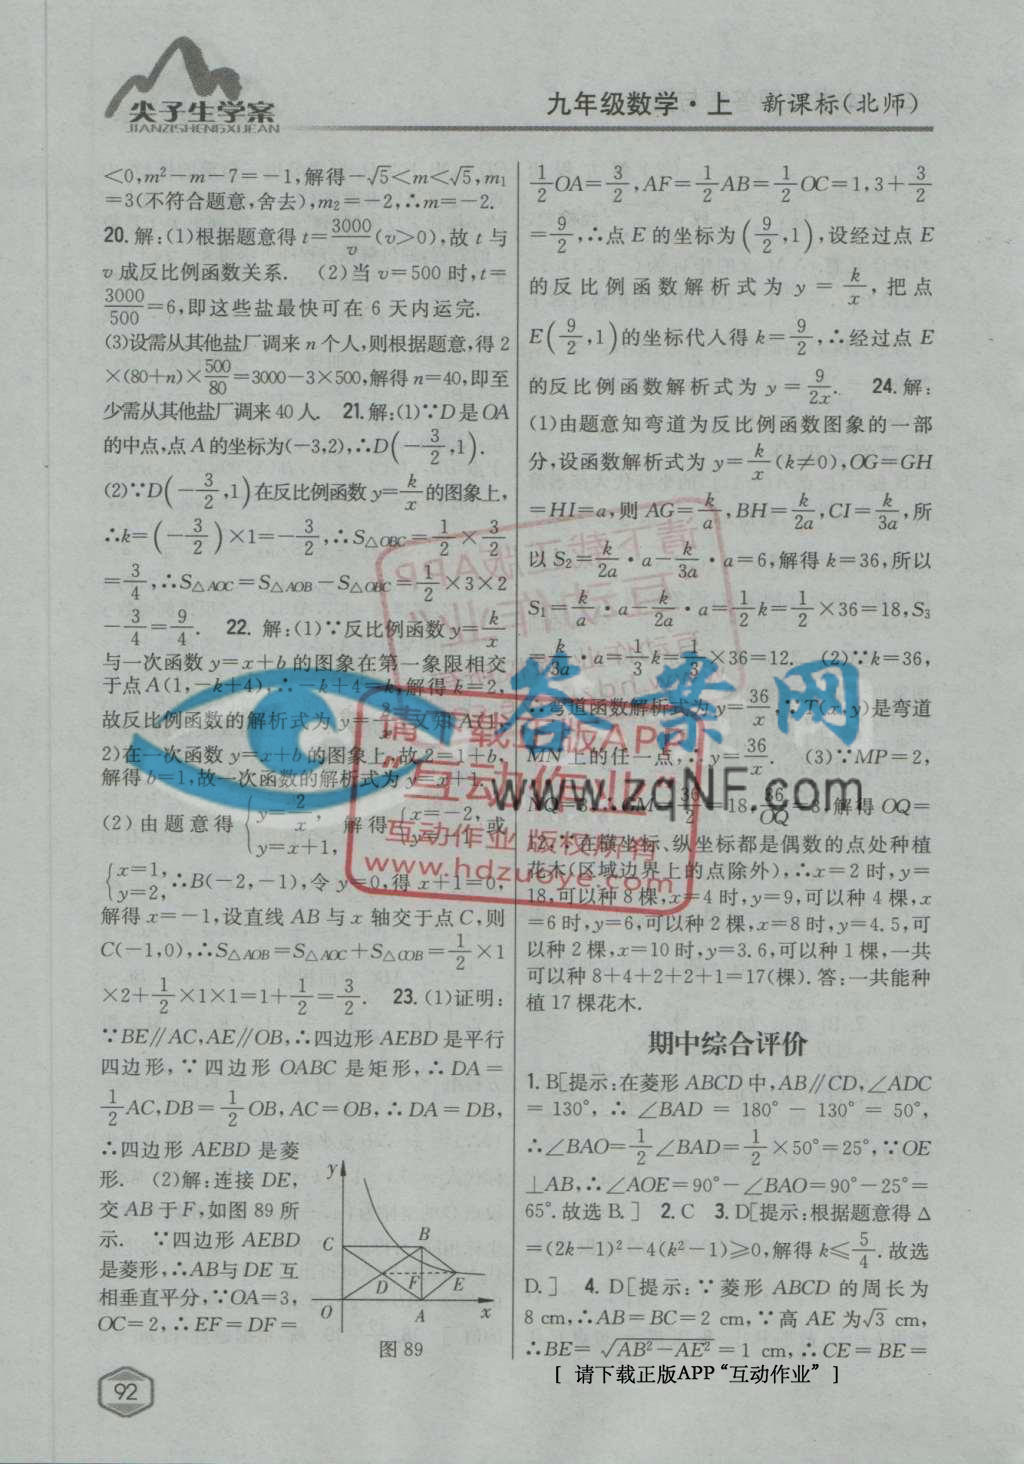 尖子生学案
JIANZISHENGXUEAN
九年级数学·上 新课标(北师)
<0,m²-m-7=-1,解得-√5<m<√5,m₁
=3(不符合题意,舍去),m₂=-2,∴m=-2.
20.解:(1)根据题意得t=3000/v(v>0),故 t 与
v 成反比例函数关系. (2)当 v=500 时,t=
3000/500=6,即这些盐最快可在 6 天内运完.
(3)设需从其他盐厂调来 n 个人,则根据题意,得 2
×(80+n)×500/80=3000-3×500,解得 n=40,即至
少需从其他盐厂调来 40 人. 21.解:(1)∵D 是 OA
的中点,点 A 的坐标为(-3,2),∴D(-3/2,1).
(2)∵D(-3/2,1)在反比例函数 y=k/x的图象上,
∴k=(-3/2)×1=-3/2,∴S△OBC=1/2×3/2
=3/4,∴S△AOC=S△AOB-S△OBC=1/2×3×2
-3/4=9/4. 22. 解:(1)∵反比例函数 y=k/x
与一次函数 y=x+b 的图象在第一象限相交
于点 A(1,-k+4),∴-k+4=k,解得 k=2,
故反比例函数的解析式为 y=2/x,又知 A(1,
2)在一次函数 y=x+b 的图象上,故 2=1+b,
解得 b=1,故一次函数的解析式为 y=x+1.
(2) 由 题 意 得 {y=2/x, y=x+1, 解 得 {x=-2, y=-1 或
{x=1, y=2, ∴B(-2,-1),令 y=0,得 x+1=0,
解得 x=-1,设直线 AB 与 x 轴交于点 C,则
C(-1,0),∴S△AOB=S△AOC+S△COB=1/2×1
×2+1/2×1×1=1+1/2=3/2. 23. (1)证明:
∵BE∥AC,AE∥OB,∴四边形 AEBD 是平行
四边形,∵四边形 OABC 是矩形,∴DA=
1/2AC,DB=1/2OB,AC=OB,∴DA=DB,
∴四边形 AEBD 是菱
形. (2)解:连接 DE,
交 AB 于 F,如图 89 所
示. ∵四边形 AEBD
是菱形,∴AB与 DE 互
相垂直平分,∵OA=3,
OC=2,∴EF=DF=
y
C
B
D
F
E
O
A
x
图 89
1/2OA=3/2,AF=1/2AB=1/2OC=1,3+3/2
=9/2,∴点 E 的坐标为(9/2,1),设经过点 E
的反比例函数解析式为 y=k/x,把点
E(9/2,1)的坐标代入得 k=9/2,∴经过点 E
的反比例函数解析式为 y=9/2x. 24.解:
(1)由题意知弯道为反比例函数图象的一部
分,设函数解析式为 y=k/x(k≠0),OG=GH
=HI=a,则 AG=k/a,BH=k/2a,CI=k/3a,所
以 S₂=k/2a·a-k/3a·a=6,解得 k=36,所以
S₁=k/a·a-k/2a·a=1/2k=1/2×36=18,S₃
=k/3a·a=1/3k=1/3×36=12. (2)∵k=36,
∴弯道函数解析式为 y=36/x,∵T(x,y)是弯道
MN 上的任一点,∴y=36/x. (3)∵MP=2,
NQ=3,∴GM=36/2=18,36/OQ=3,解得 OQ=
12,∵在横坐标、纵坐标都是偶数的点处种植
花木(区域边界上的点除外),∴x=2 时,y=
18,可以种 8 棵,x=4 时,y=9,可以种 4 棵,x
=6 时,y=6,可以种 2 棵,x=8 时,y=4.5,可
以种 2 棵,x=10 时,y=3.6,可以种 1 棵,一共
可以种 8+4+2+2+1=17(棵).答:一共能种
植 17 棵花木.
期中综合评价
1.B[提示:在菱形 ABCD 中,AB∥CD,∠ADC
=130°,∴∠BAD=180°-130°=50°,
∴∠BAO=1/2∠BAD=1/2×50°=25°,∵OE
⊥AB,∴∠AOE=90°-∠BAO=90°-25°=
65°.故选 B.] 2.C 3.D[提示:根据题意得 Δ
=(2k-1)²-4(k²-1)≥0,解得 k≤5/4.故选
D.] 4. D[提示:∵菱形 ABCD 的周长为
8 cm,∴AB=BC=2 cm,∵高 AE 为√3 cm,
∴BE=√AB²-AE²=1 cm,∴CE=BE=
[ 请下载正版APP“互动作业” ]
92
请下载正版APP
“互动作业”
互动作业 版权所有
www.hdzuoye.com
答案网
www.zqNF.com